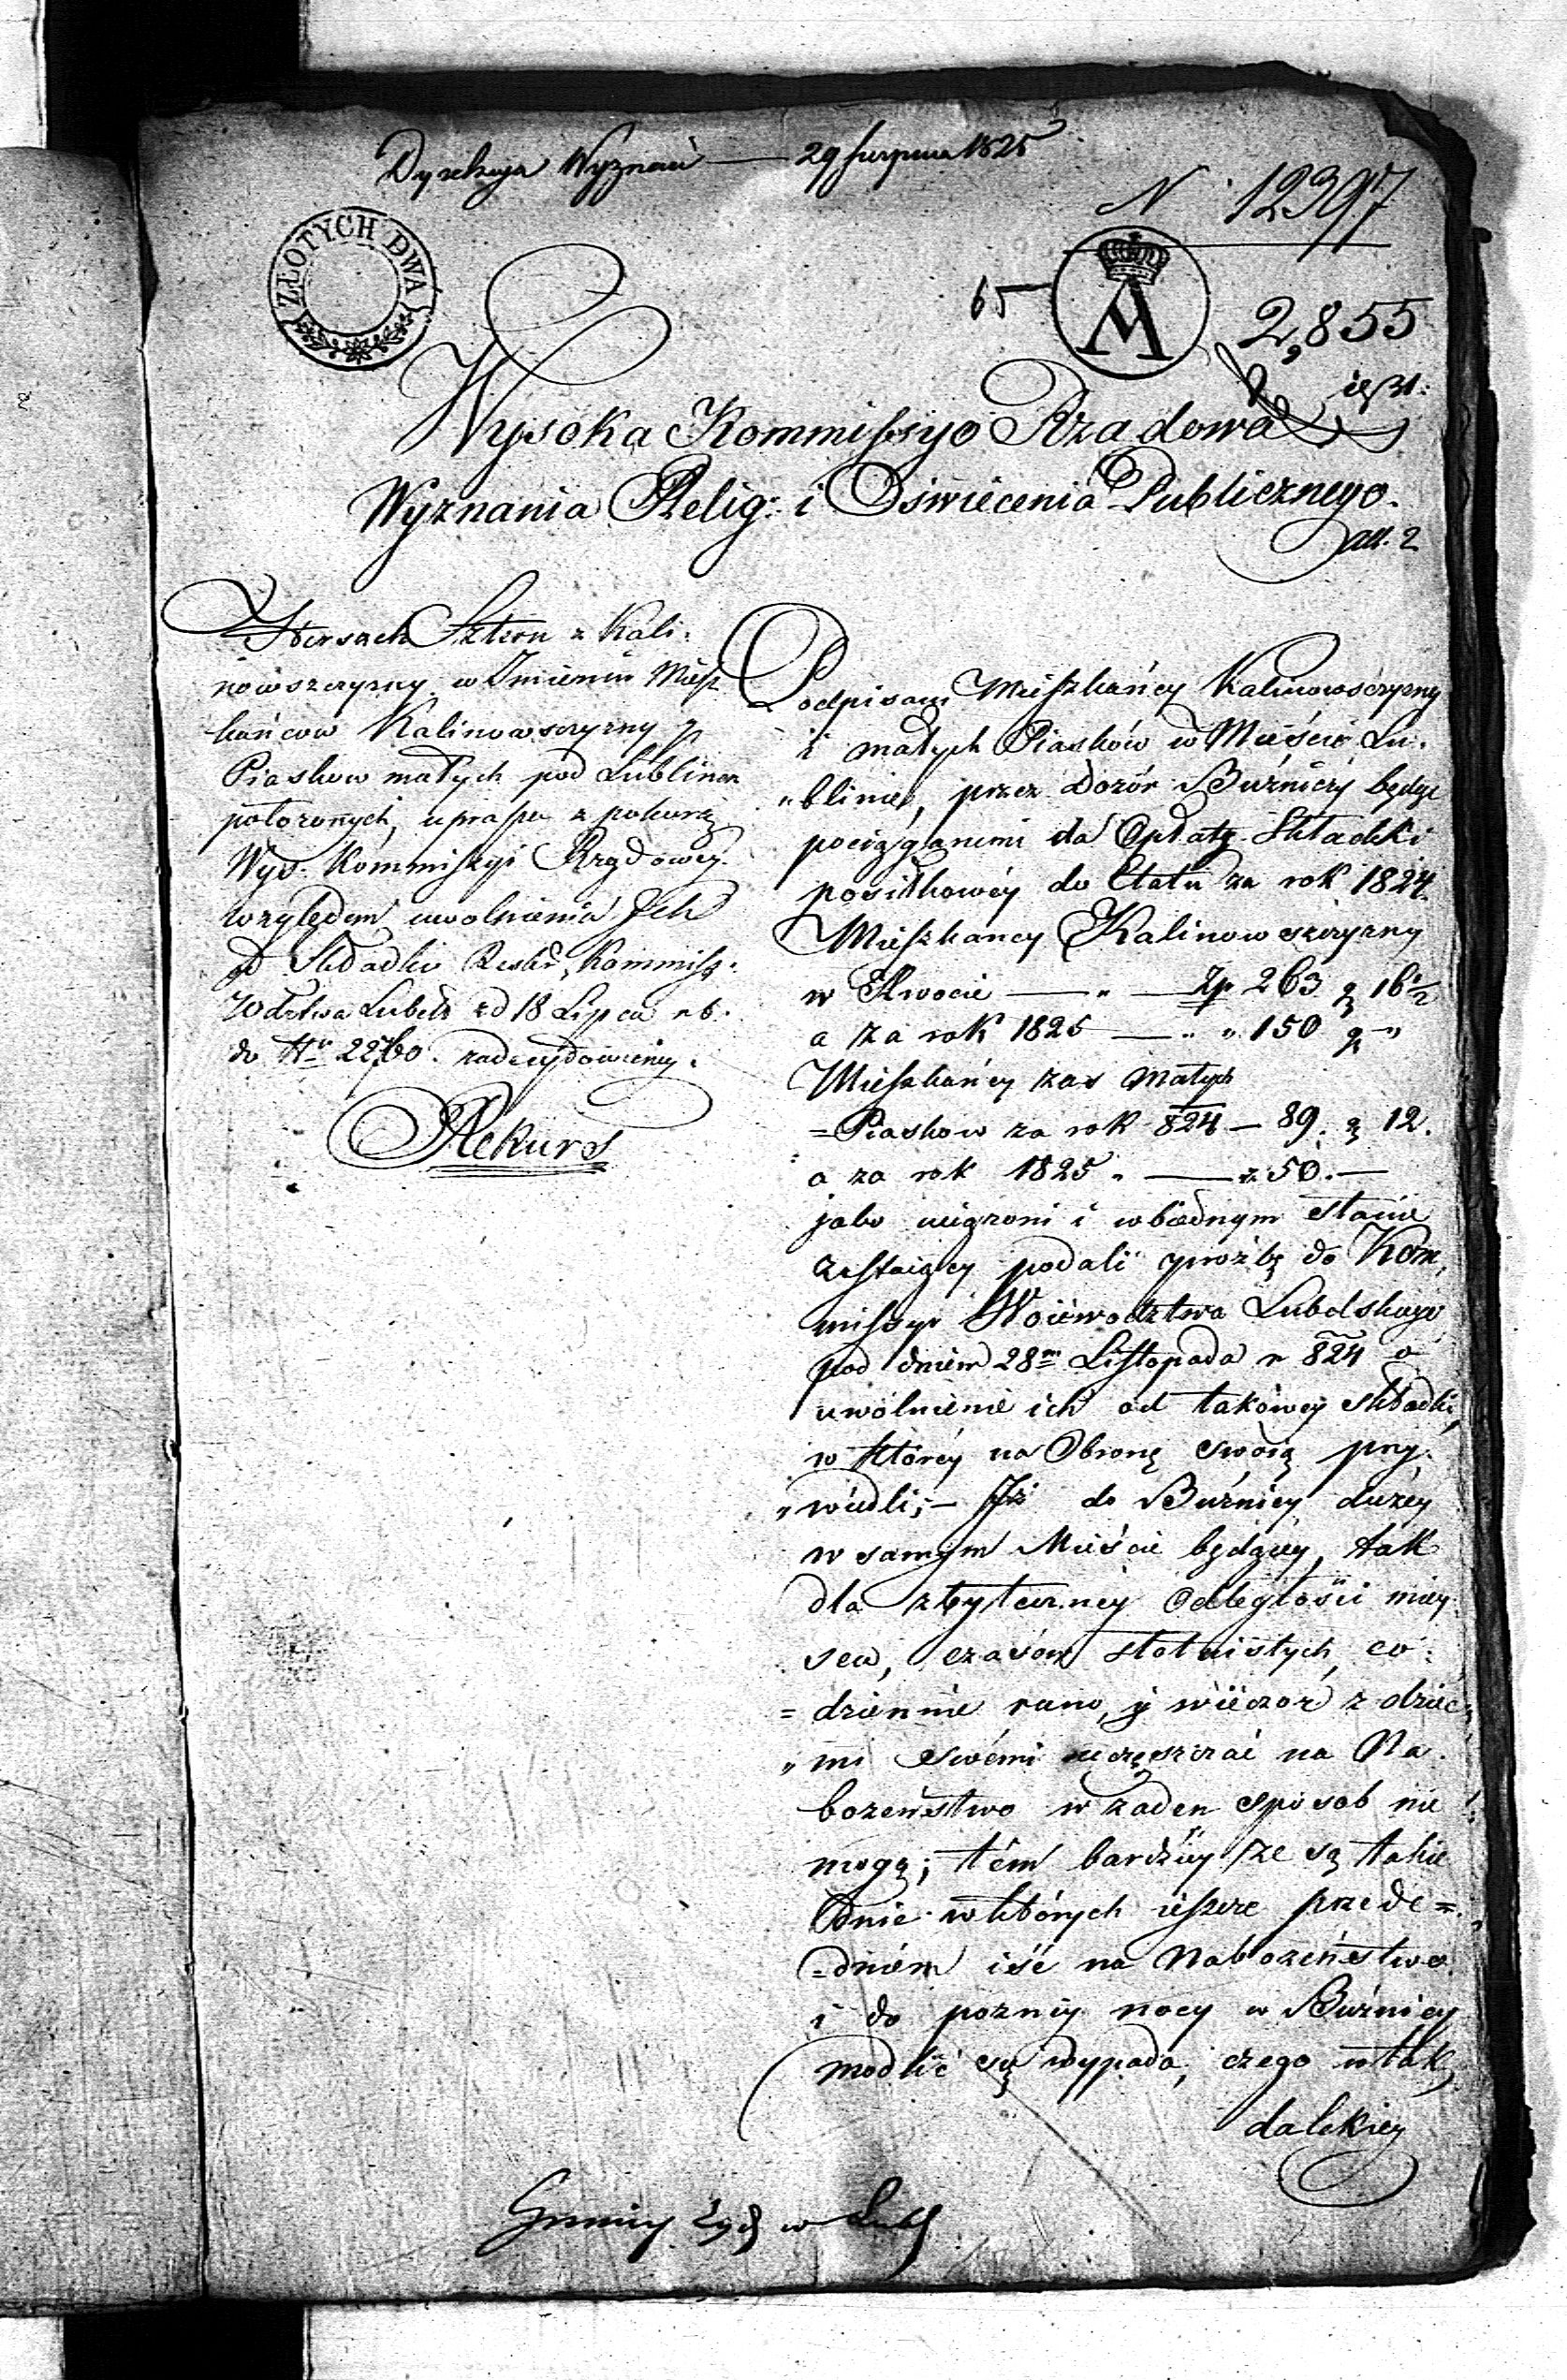 Dyrekcya Wyznań — 29 sierpnia 1825
N 12397
ZŁOTYCH DWA
65
A
2,855
Wysoka Kommissyo Rządowa
Wyznania Relig: i Oświecenia Publicznego.
all. 2
Herszek Sztern z Kali:
nowszczyzny w Imieniu Miesz
kańców Kalinowszczyzny y
Piaskow małych pod Lublinem
położonych, uprasza z pokorą
Wys. Kommissyi Rządowey
względem uwolnienia Jch
od Składki Reskr. Kommiss.
Wdztwa Lubels. z d 18 Lipca r b.
do Nr 22760. zadecydowaney.
Rekurs
Podpisani Mieszkańcy Kalinowsczyzny
i małych Piasków w Mieście Lu.
„blinie, przez Dozór Bużniczy będąc
pociąganemi do Opłaty Składki
posiłkowéy do Etatu za rok 1824.
Mieszkancy Kalinowszczyzny
w Kwocie — „ — Zp 263 g 16½
a za rok 1825 — „ „ 150 g „
Mieszkańcy zas Małych
=Piaskow za rok 824 — 89. g 12.
a za rok 1825 „ — z 50. —
jako uciążeni i w biednym stanie
zostaiący podali proźbę do Kom,
missyi Woiewodztwa Lubelskiego
pod dniem 28m Listopada r 824 o
uwolnienie ich od takowey składki,
w któréy na Obronę swoią przy.
„wiedli; — Jż do Bużnicy dużéy
w samym Mieście będącéy, tak
dla zbyteczney Odległości miey
sca, czasow słotnistych, co:
=dziennie rano, y wieczor z dzieć„
„mi swémi uczęszczać na Na.
bożeństwo w żaden sposob nie
mogą; tém bardziey że są takie
dnie w których ieszcze przede=
=dniém iść na Nabożeństwo
i do pozney nocy w Bużnicy
modlić się wypada, czego w tak
dalekiey
Gminy Żyd w Lubl